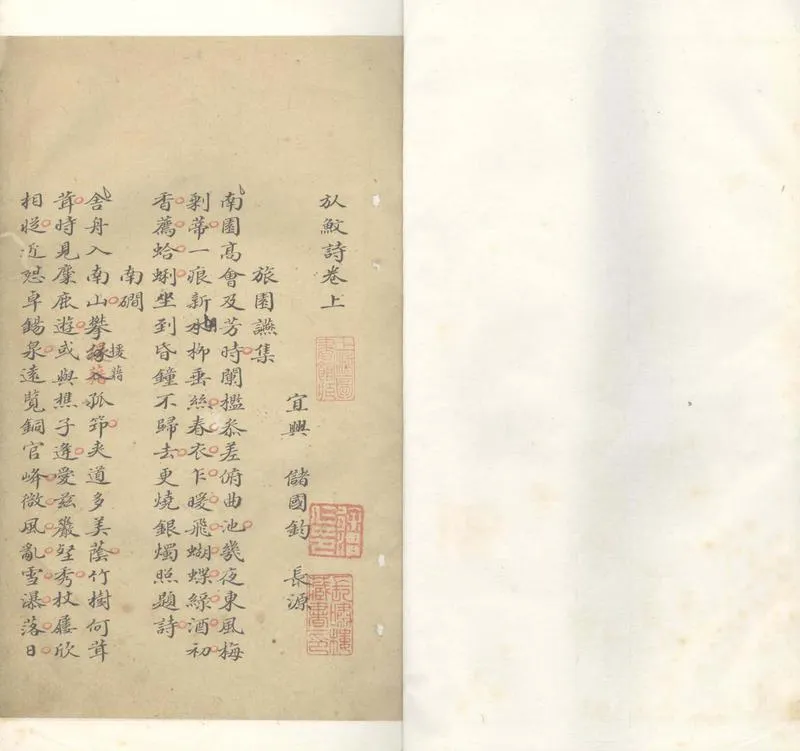 放鮫詩卷上
宜興 儲國鈞 長源
旅園讌集
南園高會及芳時闌檻叅差俯曲池幾夜東風梅
剩蒂一痕新水柳垂絲春衣乍暖飛蝴蝶綠酒初
香薦蛤蜊坐到昏鐘不歸去更燒銀燭照題詩
南磵
舍舟入南山攀援蔣孤笻夾道多美蔭竹樹何葺
茸時見麋鹿遊或與樵子逢愛茲巖壑秀杖屨欣
相從近愬卓錫泉遠覽銅官峰微風亂雪瀑落日